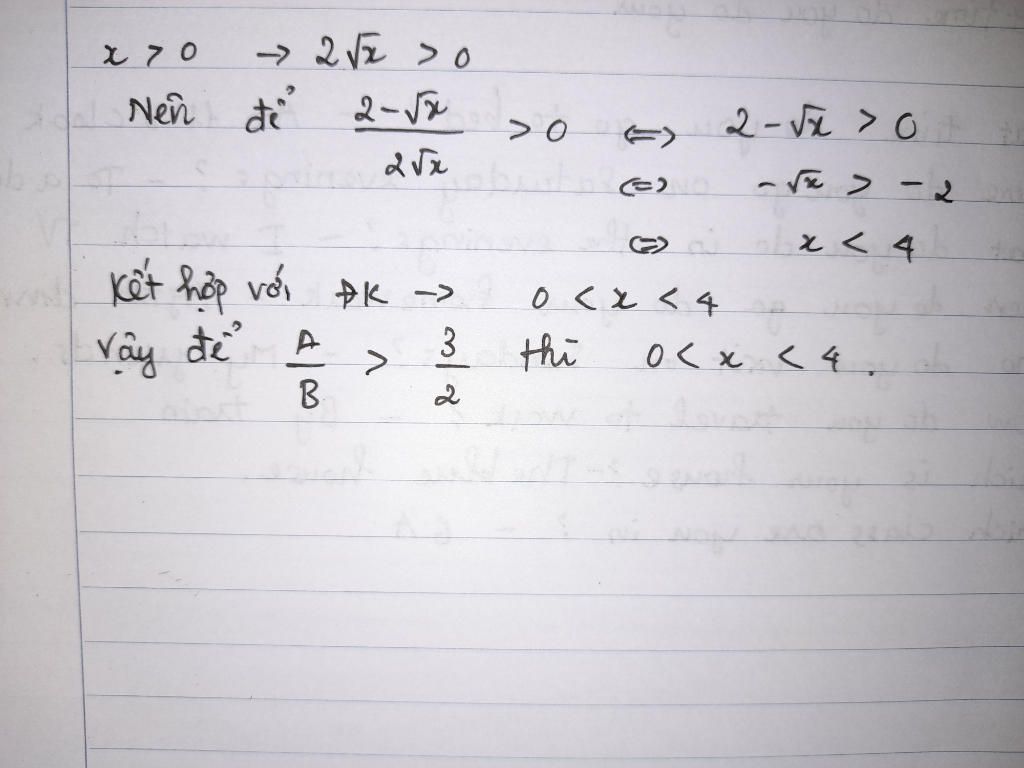 x > 0 → 2√x > 0
Nên để (2-√x)/(2√x) > 0 <=> 2-√x > 0
<=> -√x > -2
<=> x < 4
Kết hợp với ĐK → 0 < x < 4
Vậy để A/B > 3/2 thì 0 < x < 4.